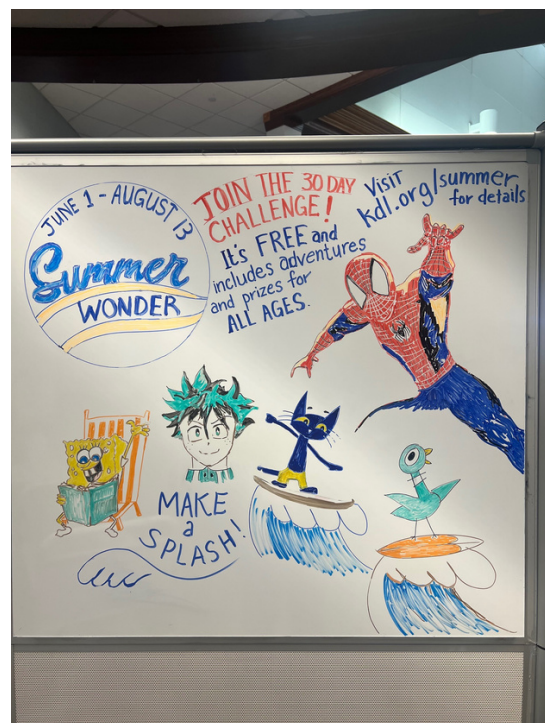 JUNE 1 - AUGUST 13
Summer
WONDER
JOIN THE 30 DAY
CHALLENGE!
It's FREE and
includes adventures
and prizes for
ALL AGES.
VISIT
kdl.org/summer
for details
MAKE
a
SPLASH!